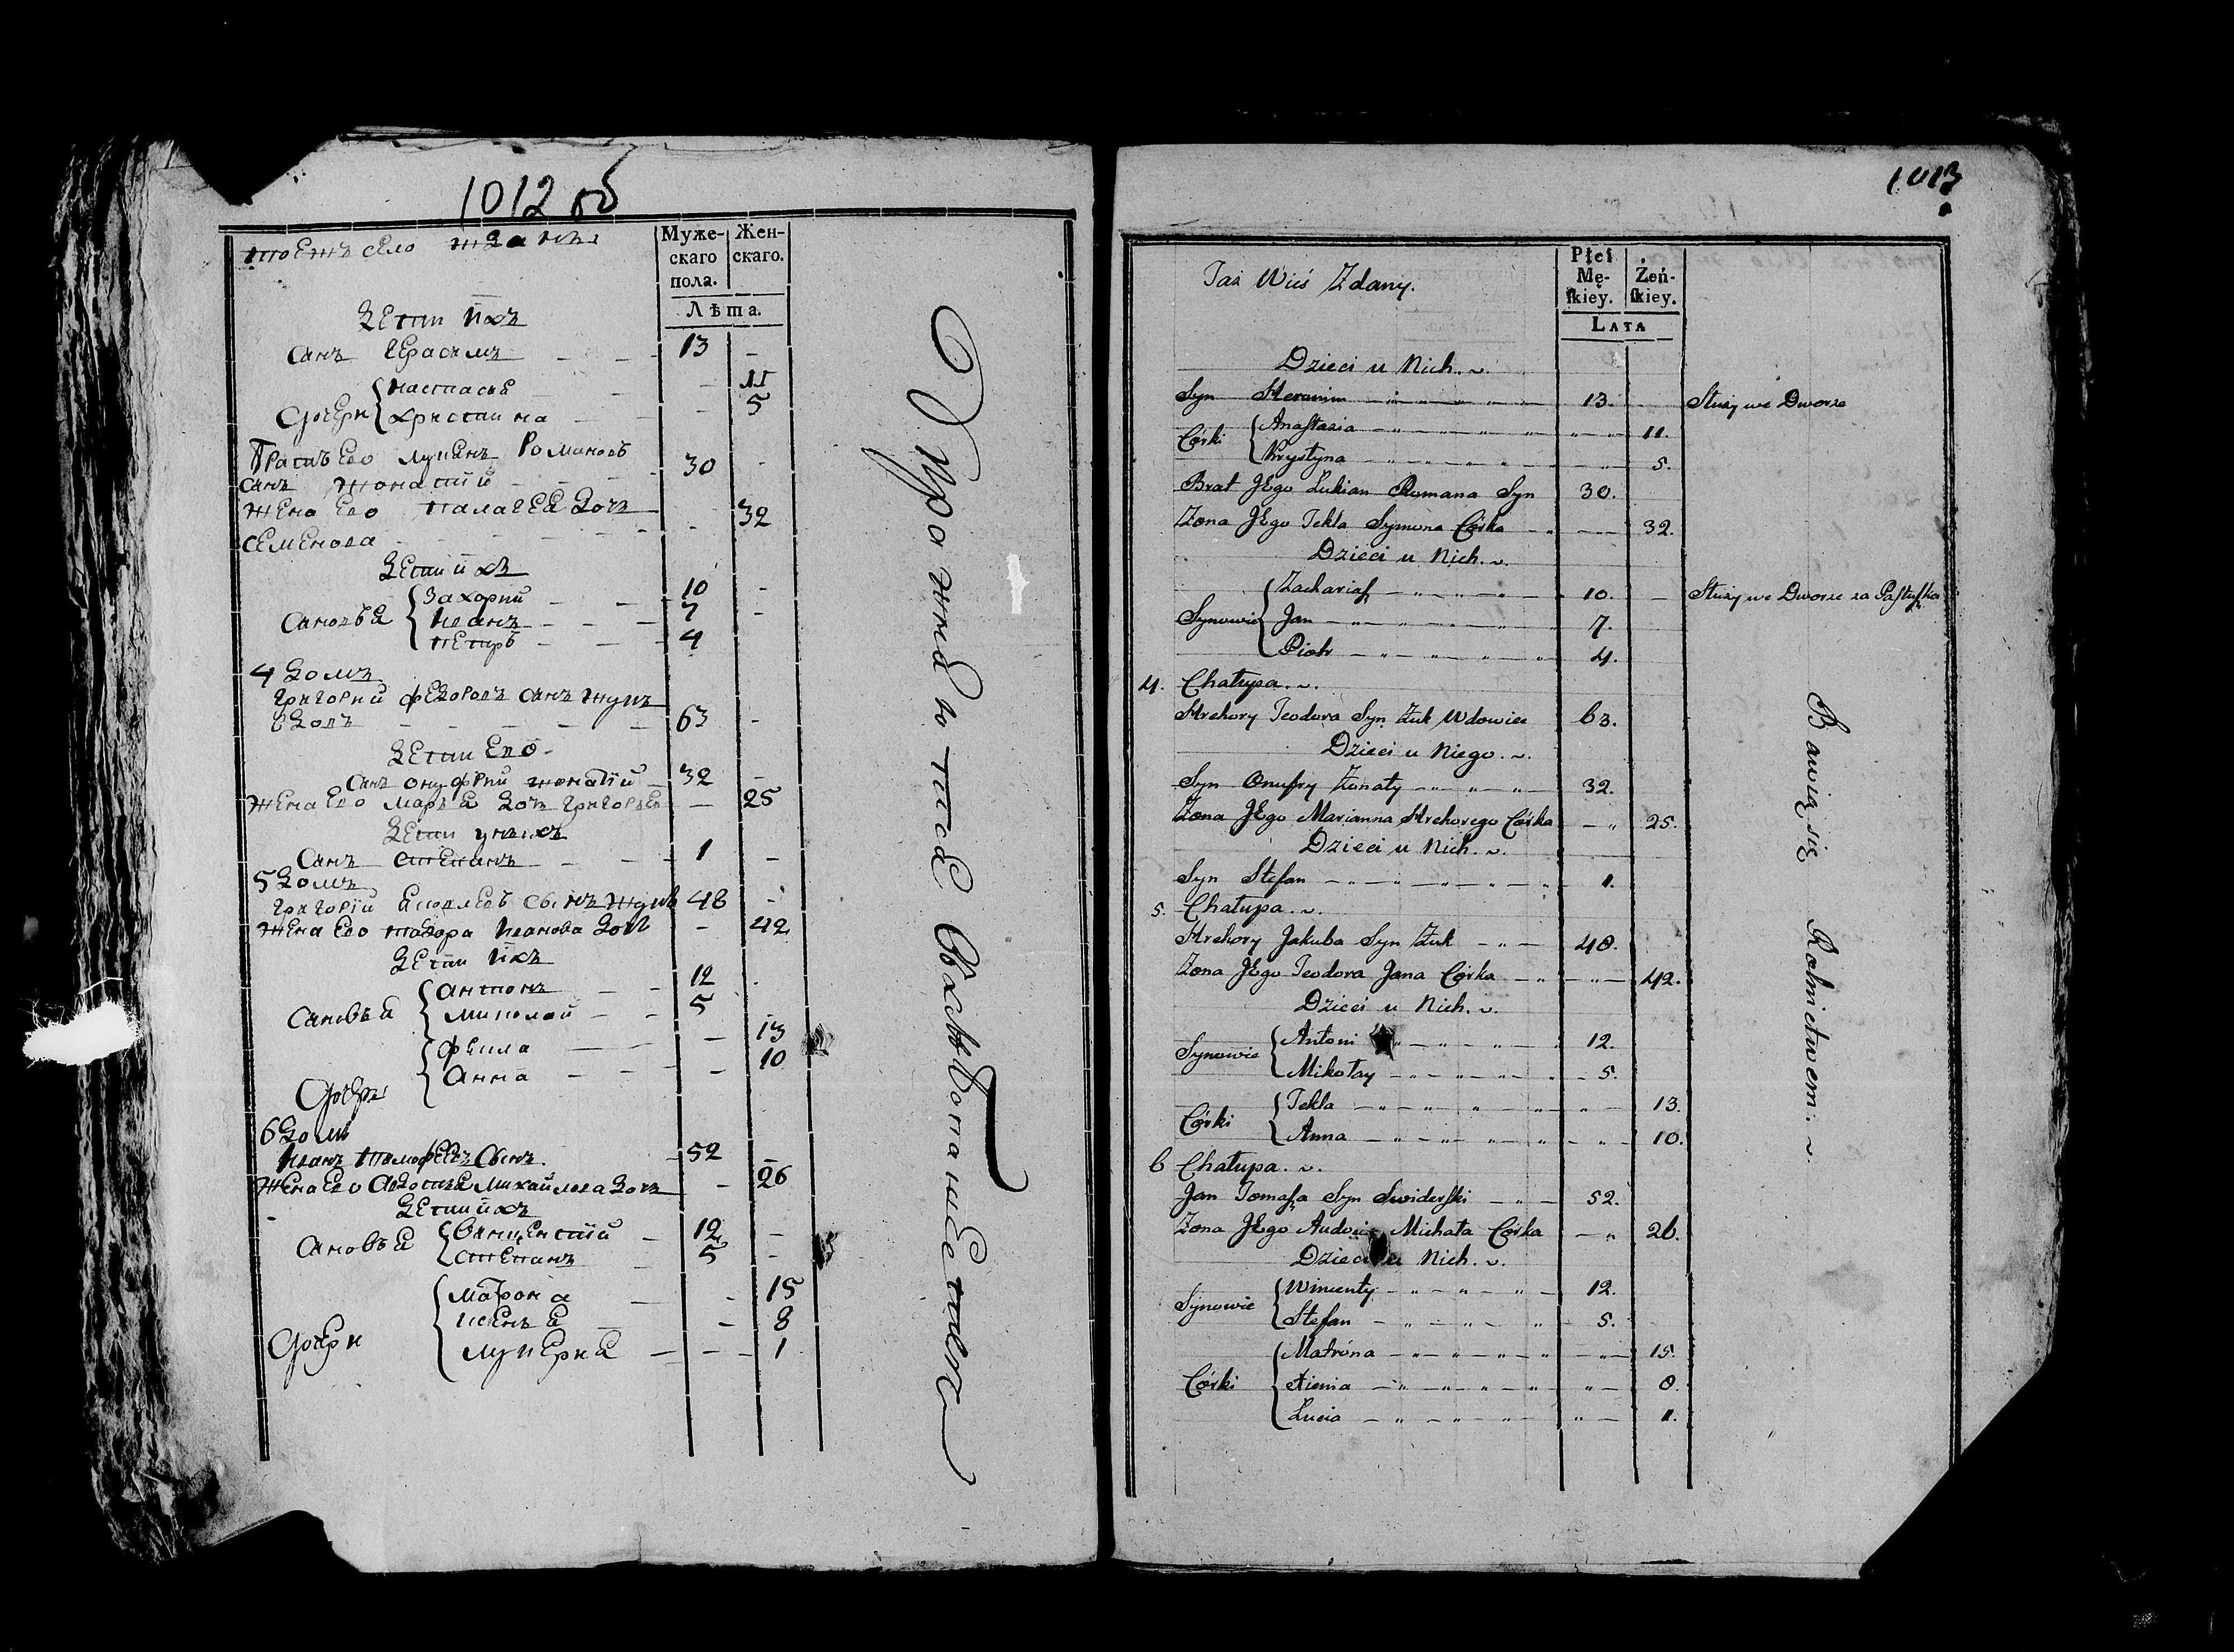 1012 об
тоежъ село ждане
Муже-скаго пола. Жен-скаго.
Лѣта.
дети ихъ
санъ герасимъ 13 -
дочери { настасья - 11
христина - 5
братъ его лукянъ Романовъ
санъ жонатий 30 -
жена его палагея дочъ - 32
семенова
дети ихъ
сановья { захорий 10 -
иванъ 7 -
петръ 4
4 домъ
григорий федоровъ санъ жукъ
вдовъ 63 -
дети его
санъ онуфрий жонатiй 32 -
жена его марья дочъ григорьев - 25
дети унихъ
санъ степанъ 1 -
5 домъ
григорiй сынъ жукъ 48 -
жена его иванова доч - 42
дети ихъ
сановья { антонъ 12 -
миколай 5 -
{ фекла - 13
анна - 10
дочери
6 домъ
иванъ тимофеевъ сынъ 52 -
жена его авдотья михайлова дочъ - 26
дети ихъ
сановья { винцентiй 12 -
степанъ 5 -
{ матрона - 15
ксенья - 8
дочери лукерия - 1
1013
Taż Wieś Zdany.
Płci Mę-skiey. Żeń-skiey.
LATA
Dzieci u Nich.
Syn Heronim 13. Służy we Dworze
Córki { Anastazia 11.
Krystyna 5.
Brat Jego Łukian Romana Syn 30.
Zona Jego Tekla Symona Córka 32.
Dzieci u Nich.
Synowie { Zachariasz 10. Służy we Dworze za Pastuszka
Jan 7.
Piotr 4.
4. Chałupa.
Hrehory Teodora Syn Żuk Wdowiec 63.
Dzieci u Niego.
Syn Onufry Żonaty 32.
Zona Jego Marianna Hrehorego Córka 25.
Dzieci u Nich.
Syn Stefan 1.
5. Chałupa.
Hrehory Jakuba Syn Żuk 48.
Zona Jego Teodora Jana Córka 42.
Dzieci u Nich.
Synowie { Antoni 12.
Mikołay 5.
Córki { Tekla 13.
Anna 10.
6 Chałupa.
Jan Tomasza Syn Swiderski 52.
Zona Jego Michała Córka 26.
Dzieci u Nich.
Synowie { Wincenty 12.
Stefan 5.
Córki { Matróna 15.
8.
Łucia 1.
Bawią się Rolnictwem.